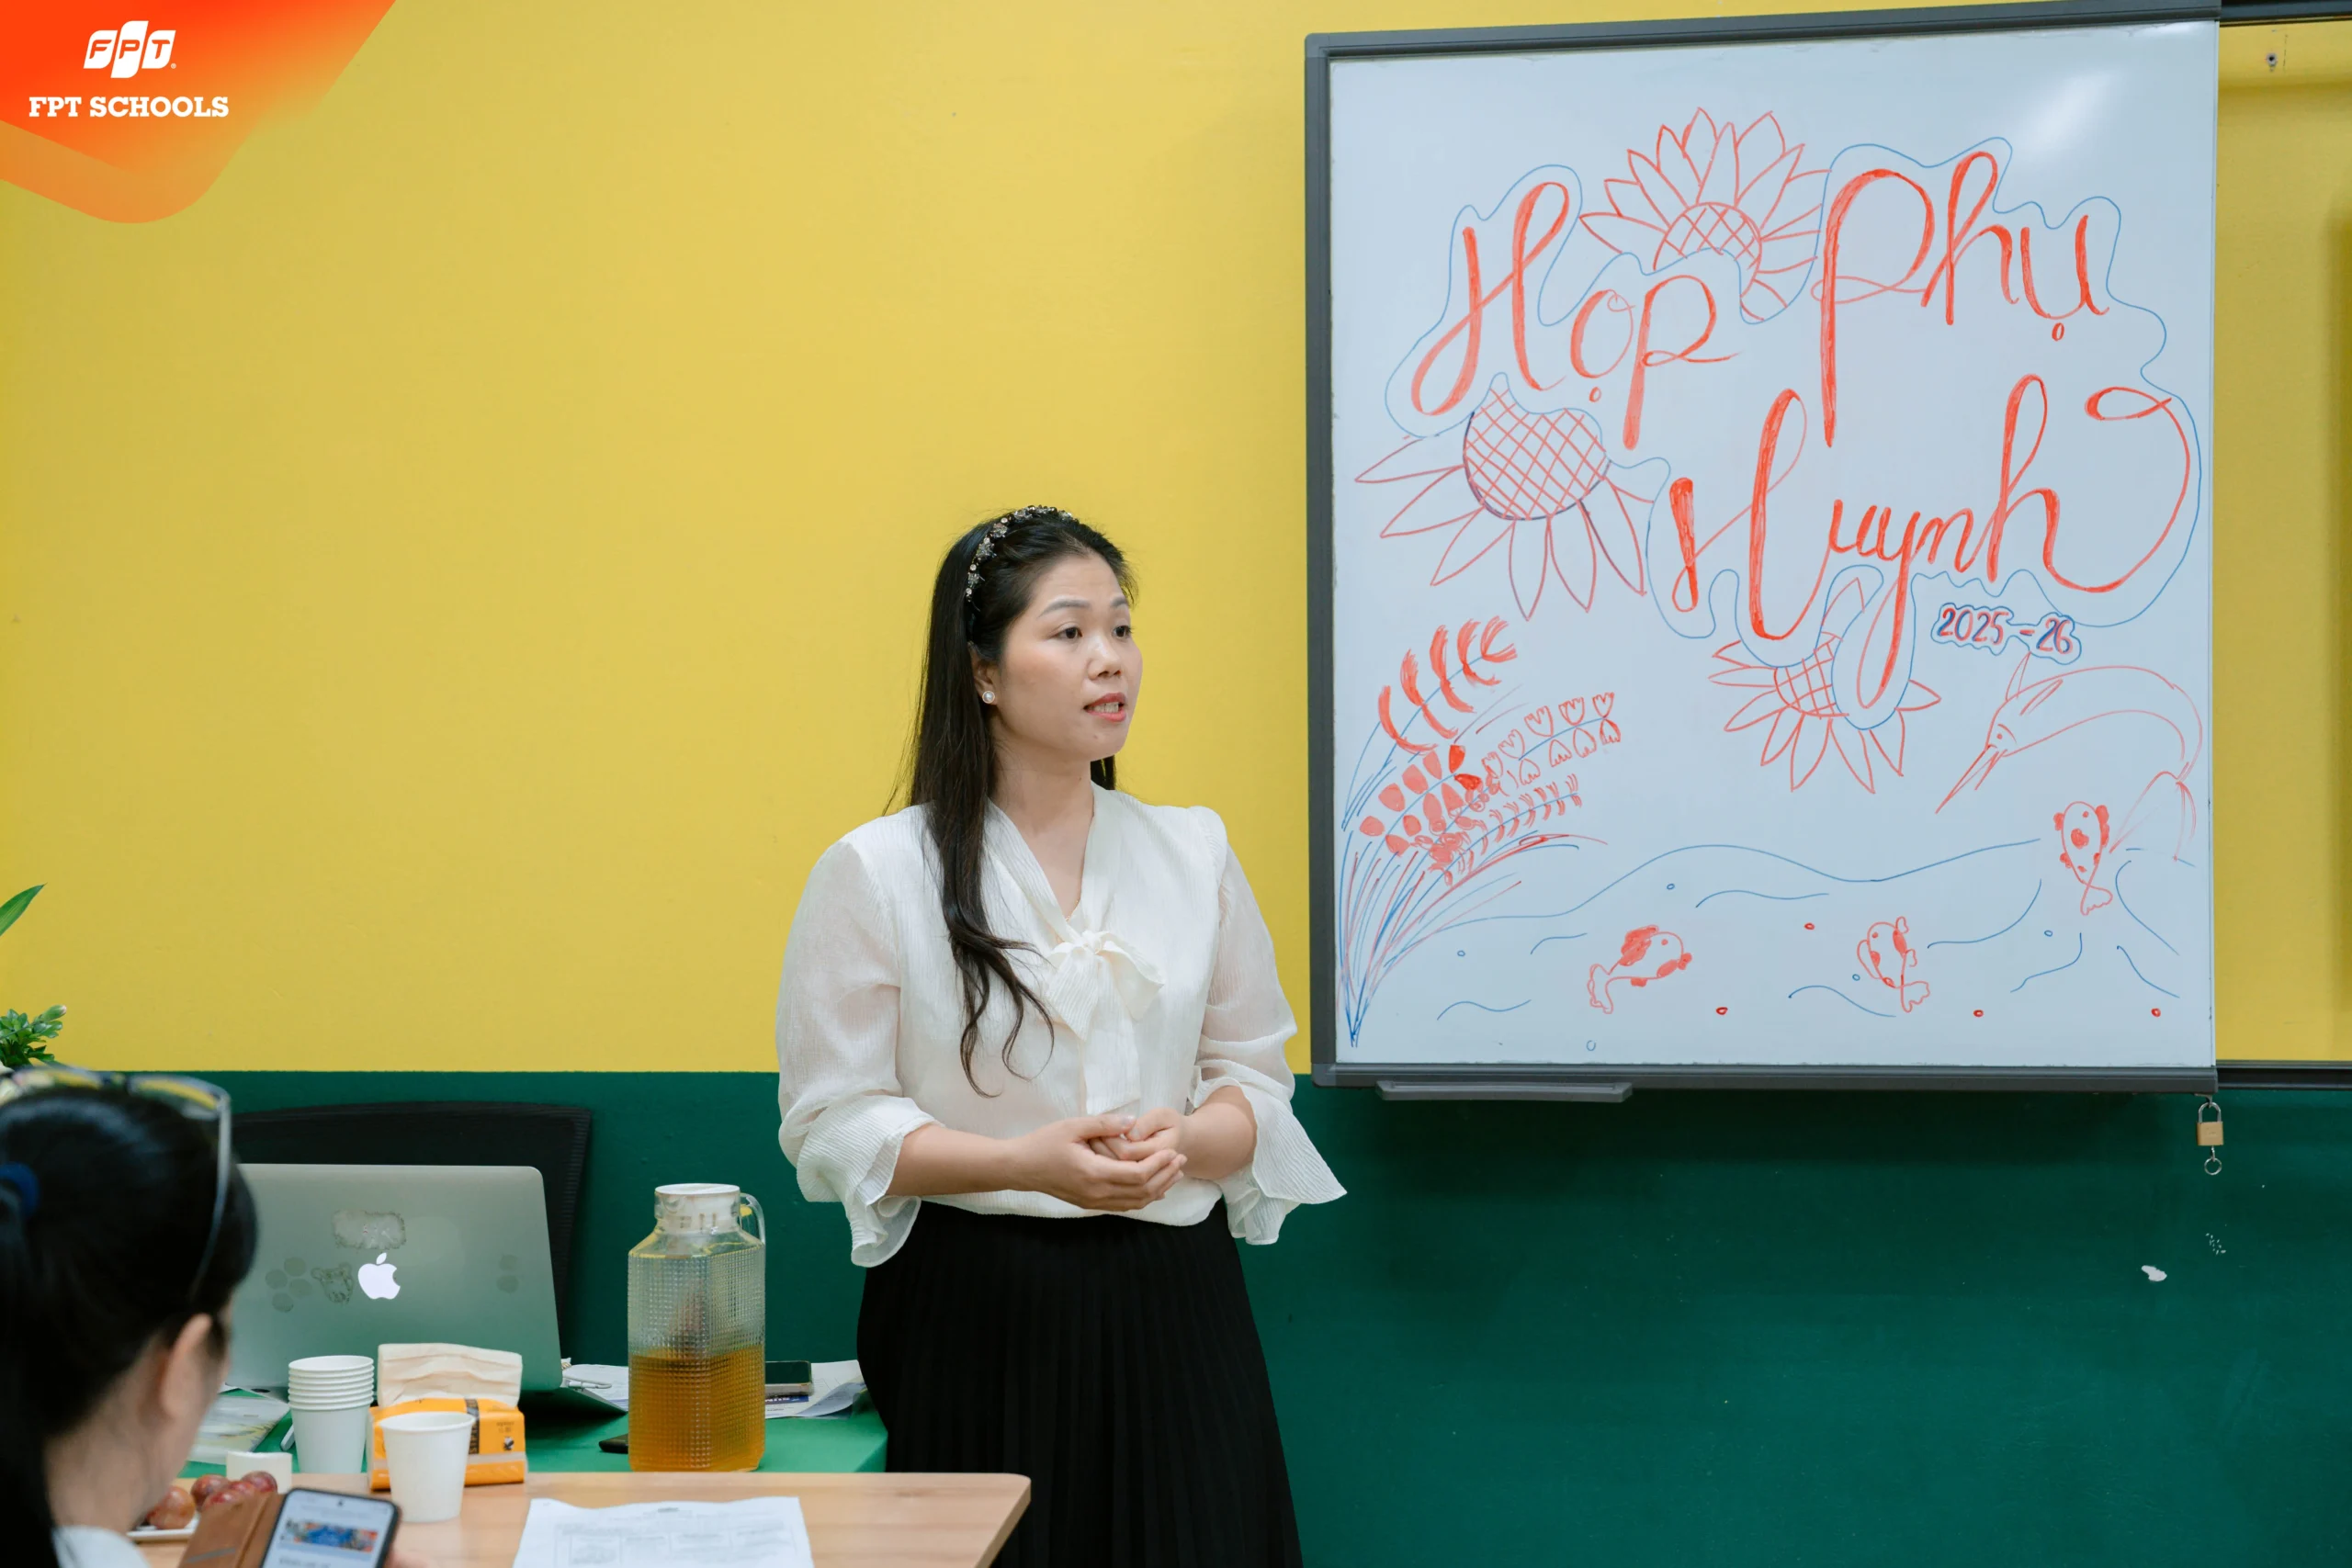 FPT
FPT SCHOOLS
Họp Phụ
Huynh
2025-26